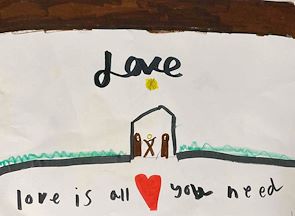 Love
love is all you need